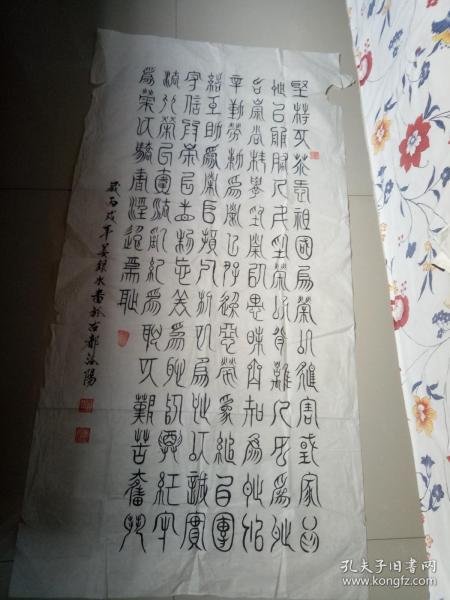 堅持以熱愛祖國為榮以危害國家為
恥以服務人民為榮以背離人民為恥
以崇尚科學為榮以愚昧無知為恥以
辛勤勞動為榮以好逸惡勞為恥以團
結互助為榮以損人利己為恥以誠實
守信為榮以見利忘義為恥以遵紀守
法為榮以違法亂紀為恥以艱苦奮鬥
為榮以驕奢淫逸為恥
歲丙戌年姜 水書於古都洛陽
孔夫子旧书网
www.kongfz.com